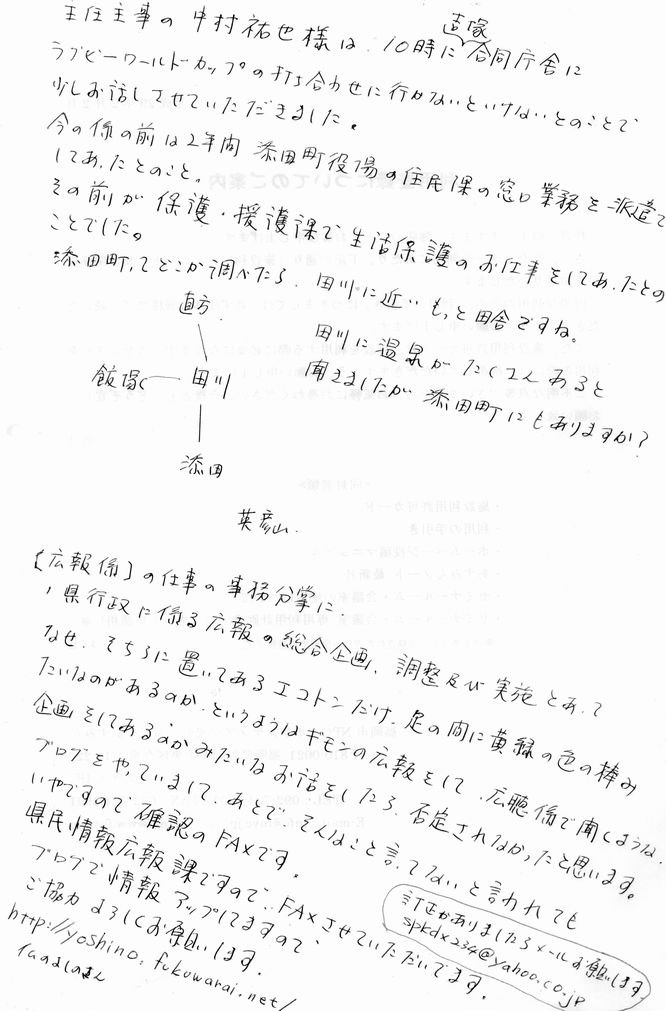 主任主事の中村祐也様は、10時に吉塚合同庁舎に
ラグビーワールドカップの打ち合わせに行かないといけないとのことで
少しお話しさせていただきました。
今の係の前は2年間 添田町役場の住民課の窓口業務を派遣で
してあったとのこと。
その前が保護・援護課で生活保護のお仕事をしてあったとの
ことでした。
添田町ってどこか調べたら、田川に近いもっと田舎ですね。
田川に温泉がたくさんあると
聞きましたが添田町にもありますか?
直方
飯塚 田川
添田
英彦山
〔広報係〕の仕事の事務分掌に、
・県行政に係る広報の総合企画、調整及び実施とあって
なぜ、そちらに置いてあるエコトンだけ、足の間に黄緑の色の棒み
たいなのがあるのか、というようなギモンの広報をして、広聴係で聞くような
企画をしてあるのかみたいなお話をしたら、否定されなかったと思います。
ブログをやっていまして、あとで、そんなこと言ってないと言われても
いやですので確認のFAXです。
県民情報広報課ですので、FAXさせていただいてます。
ブログで情報アップしてますので、
ご協力よろしくお願いします。
http://yoshino.fukuwarai.net/
訂正がありましたらメールお願いします。
spkdx234@yahoo.co.jp